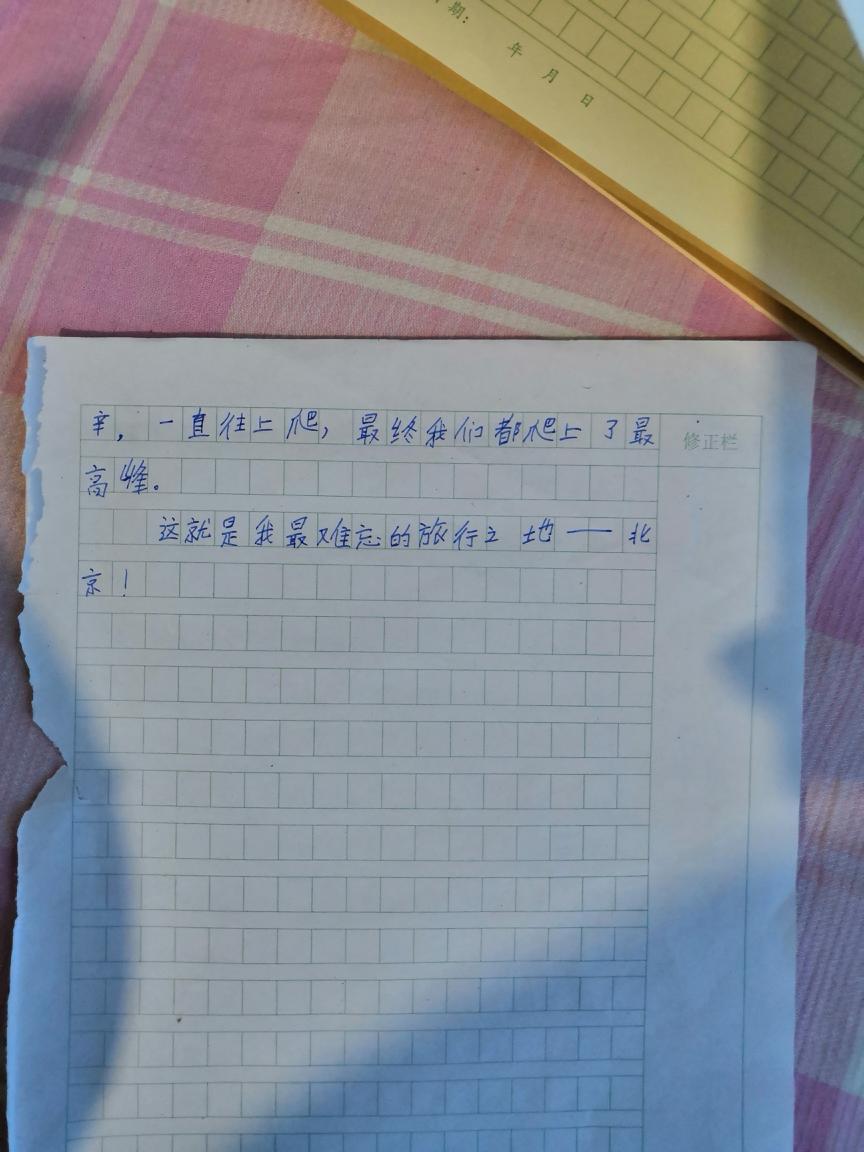 期：
年 月 日
辛，一直往上爬，最终我们都爬上了最
修正栏
高峰。
这就是我最难忘的旅行之地——北
京！